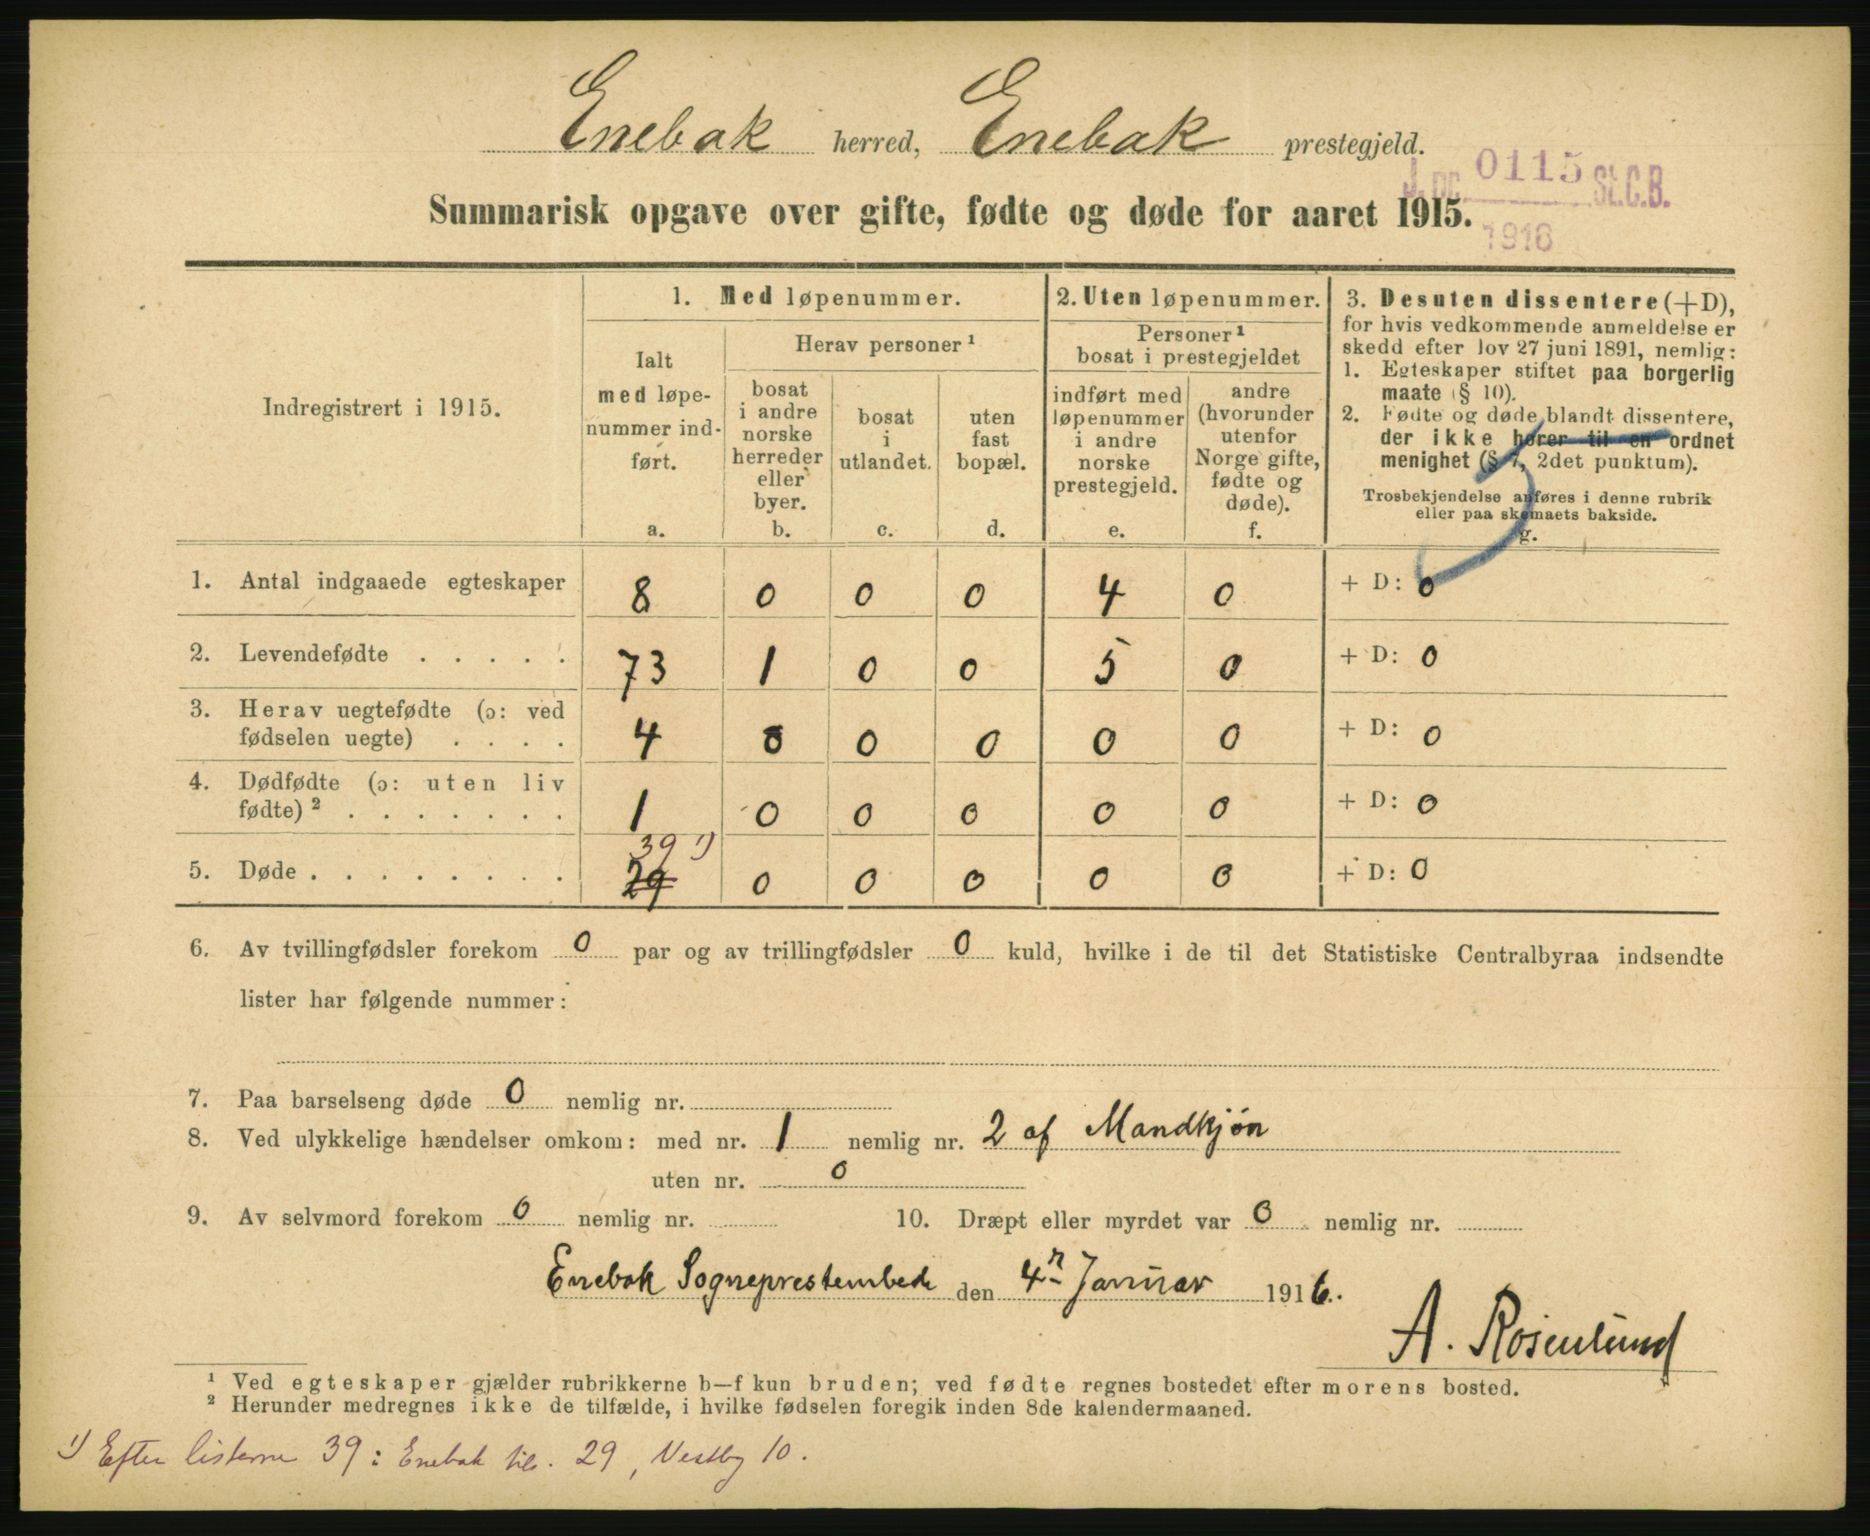 Enebak herred, Enebak prestegjeld.
J. nc 0115 St.C.B.
1916
Summarisk opgave over gifte, fødte og døde for aaret 1915.
Indregistrert i 1915.
1. Med løpenummer.
Ialt
med løpe-
nummer ind-
ført.
a.
Herav personer ¹
bosat
i andre
norske
herreder
eller
byer.
b.
bosat
i
utlandet.
c.
uten
fast
bopæl.
d.
2. Uten løpenummer.
Personer ¹
bosat i prestegjeldet
indført med
løpenummer
i andre
norske
prestegjeld.
e.
andre
(hvorunder
utenfor
Norge gifte,
fødte og
døde).
f.
3. Desuten dissentere (+D),
for hvis vedkommende anmeldelse er
skedd efter lov 27 juni 1891, nemlig:
1. Egteskaper stiftet paa borgerlig
maate (§ 10).
2. Fødte og døde blandt dissentere,
der ikke hører til en ordnet
menighet (§ 7, 2det punktum).
Trosbekjendelse anføres i denne rubrik
eller paa skemaets bakside.
g.
1. Antal indgaaede egteskaper 8 0 0 0 4 0 + D: 0
2. Levendefødte . . . . . 73 1 0 0 5 0 + D: 0
3. Herav uegtefødte (ɔ: ved
fødselen uegte) . . . . 4 0 0 0 0 0 + D: 0
4. Dødfødte (ɔ: uten liv
fødte) ² . . . . . . . 1 0 0 0 0 0 + D: 0
39 ¹)
5. Døde . . . . . . . . 29 0 0 0 0 0 + D: 0
6. Av tvillingfødsler forekom 0 par og av trillingfødsler 0 kuld, hvilke i de til det Statistiske Centralbyraa indsendte
lister har følgende nummer:
7. Paa barselseng døde 0 nemlig nr.
8. Ved ulykkelige hændelser omkom: med nr. 1 nemlig nr. 2 af Mandkjøn
uten nr. 0
9. Av selvmord forekom 0 nemlig nr. 10. Dræpt eller myrdet var 0 nemlig nr.
Enebak Sogneprestembede den 4 Januar 1916.
A. Rosenlund
¹ Ved egteskaper gjælder rubrikkerne b—f kun bruden; ved fødte regnes bostedet efter morens bosted.
² Herunder medregnes ikke de tilfælde, i hvilke fødselen foregik inden 8de kalendermaaned.
¹) Efter listerne 39: Enebak 29, Vestby 10.